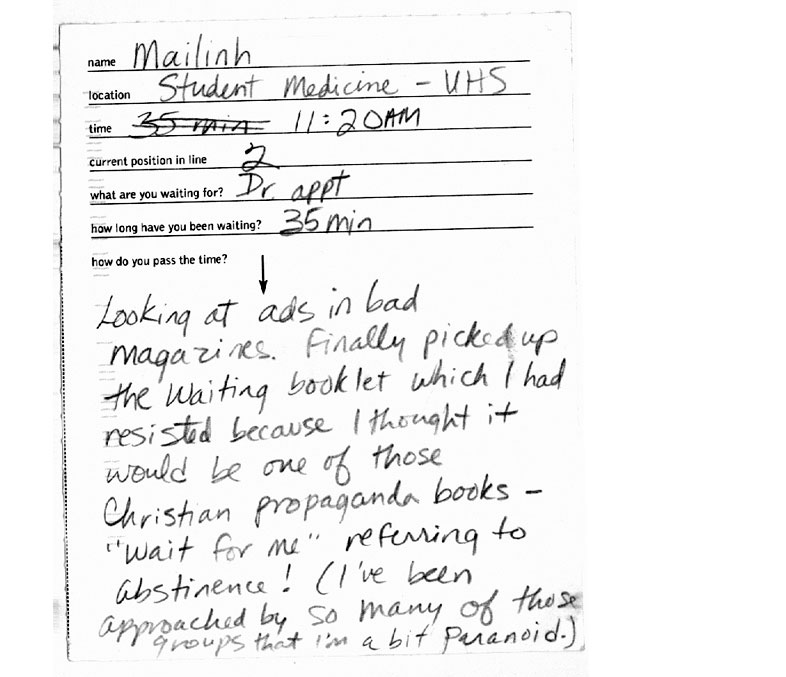 name Mailinh
location Student Medicine - UHS
time 35 min 11:20AM
current position in line 2
what are you waiting for? Dr. appt
how long have you been waiting? 35 min
how do you pass the time?
Looking at ads in bad
magazines. Finally picked up
the Waiting booklet which I had
resisted because I thought it
would be one of those
Christian propaganda books -
"Wait for me" referring to
abstinence! (I've been
approached by so many of those
groups that I'm a bit paranoid.)